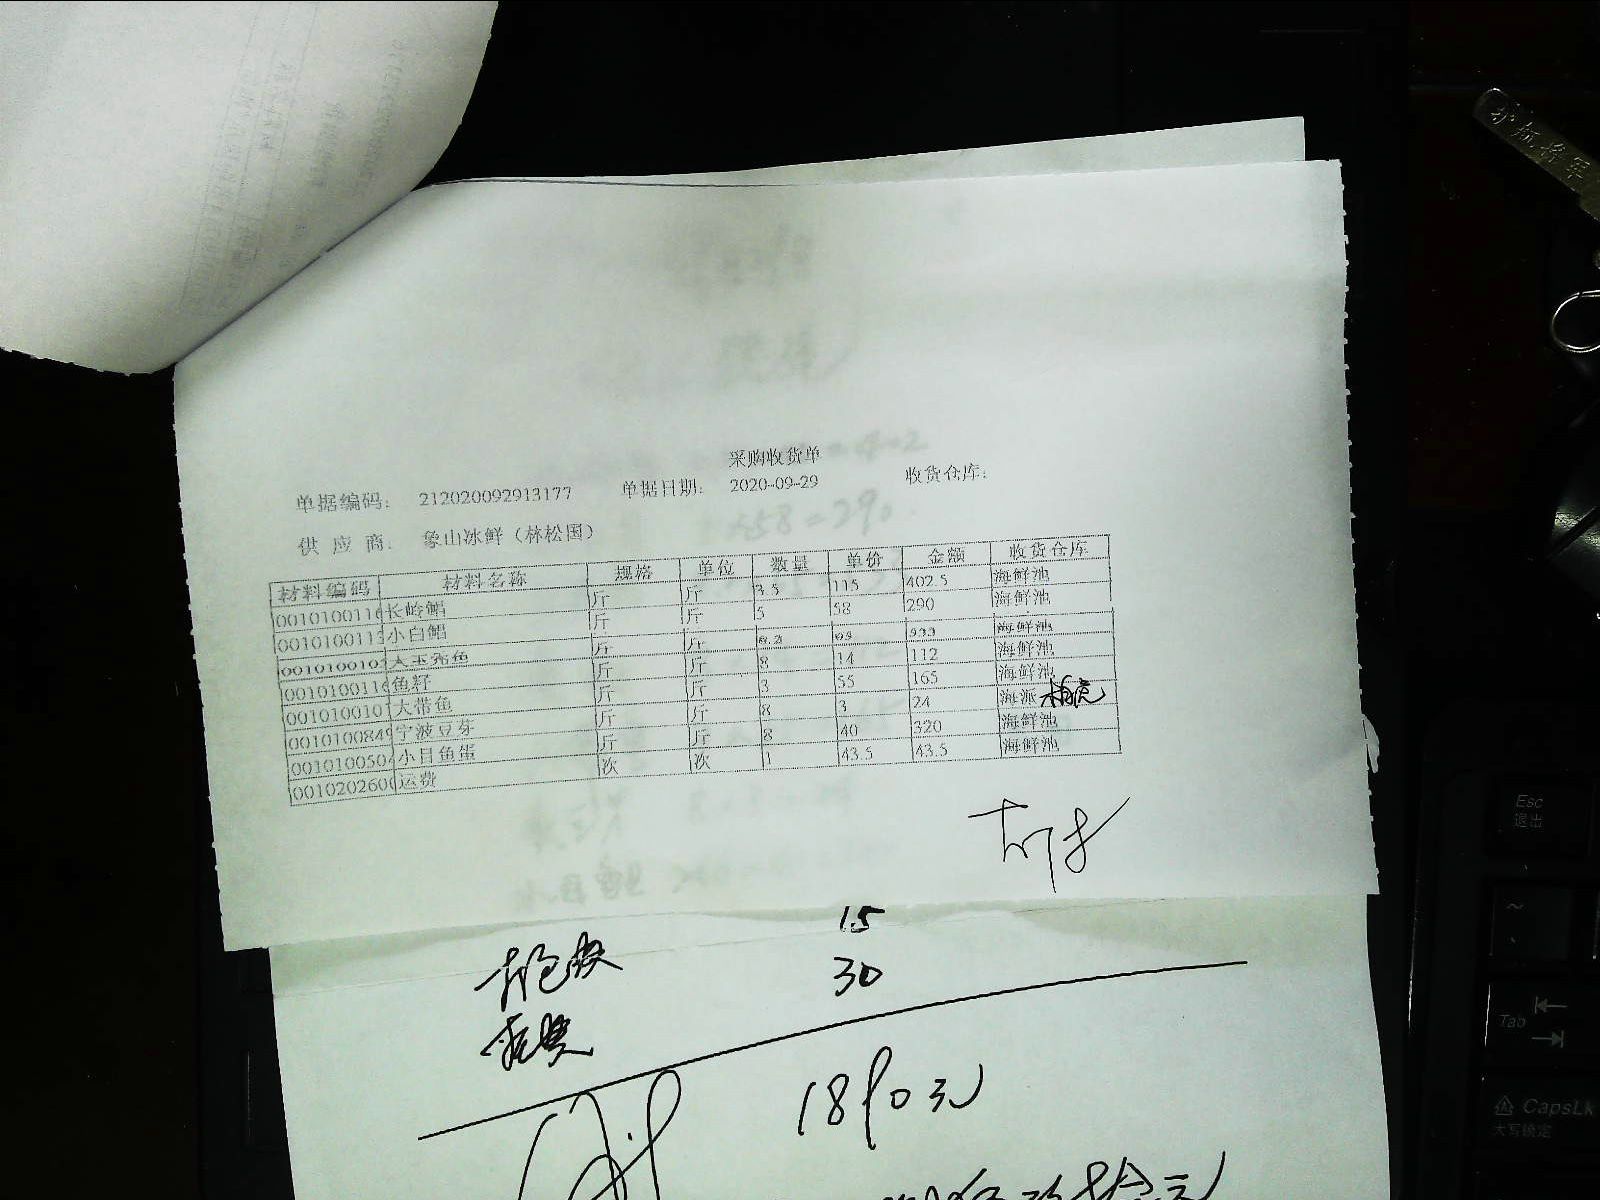 采购收货单
单据编码: 212020092913177 单据日期: 2020-09-29 收货仓库:
供应商: 象山冰鲜（林松国）
材料编码 材料名称 规格 单位 数量 单价 金额 收货仓库
0010100116 长岭鲳 斤 斤 3.5 115 402.5 海鲜池
001010011 小白鲳 斤 斤 5 58 290 海鲜池
001010010 斤 斤 海鲜池
001010011 鱼籽 斤 斤 8 14 112 海鲜池
001010010 大带鱼 斤 斤 3 55 165 海鲜池
001010084 宁波豆芽 斤 斤 8 3 24 海派
001010050 小目鱼蛋 斤 斤 8 40 320 海鲜池
001020260 运费 次 次 1 43.5 43.5 海鲜池
15
30
1890元
Esc
退出
Tab
CapsLk
大写锁定